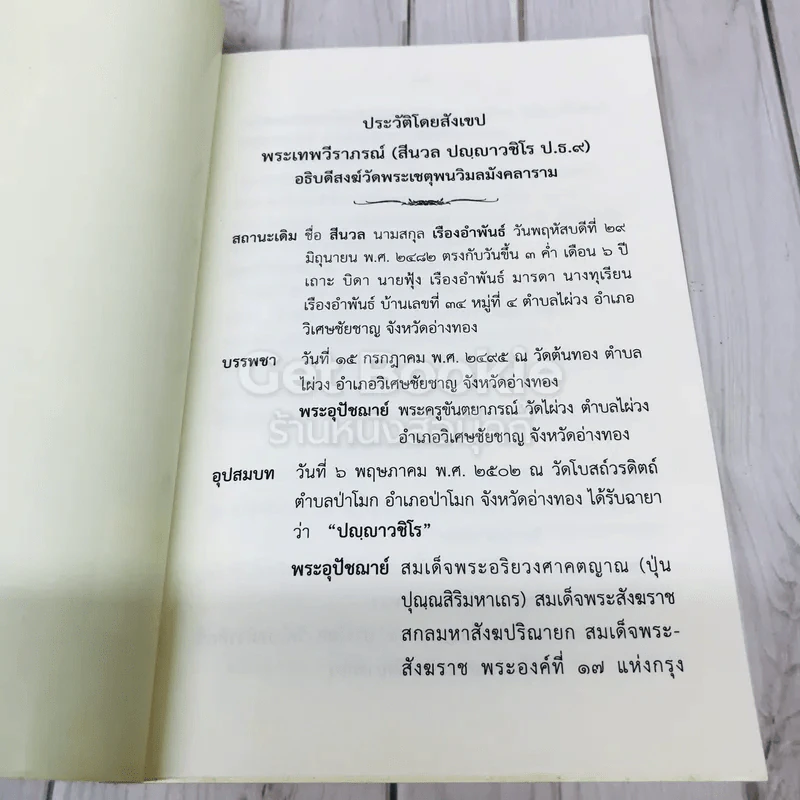 ประวัติโดยสังเขป
พระเทพวีราภรณ์ (สีนวล ปญฺญาวชิโร ป.ธ.๙)
อธิบดีสงฆ์วัดพระเชตุพนวิมลมังคลาราม
สถานะเดิม ชื่อ สีนวล นามสกุล เรืองอำพันธ์ วันพฤหัสบดีที่ ๒๙
มิถุนายน พ.ศ. ๒๔๘๒ ตรงกับวันขึ้น ๓ ค่ำ เดือน ๖ ปี
เถาะ บิดา นายฟุ้ง เรืองอำพันธ์ มารดา นางทุเรียน
เรืองอำพันธ์ บ้านเลขที่ ๓๔ หมู่ที่ ๔ ตำบลไผ่วง อำเภอ
วิเศษชัยชาญ จังหวัดอ่างทอง
บรรพชา วันที่ ๑๕ กรกฎาคม พ.ศ. ๒๔๙๕ ณ วัดต้นทอง ตำบล
ไผ่วง อำเภอวิเศษชัยชาญ จังหวัดอ่างทอง
พระอุปัชฌาย์ พระครูขันตยาภรณ์ วัดไผ่วง ตำบลไผ่วง
อำเภอวิเศษชัยชาญ จังหวัดอ่างทอง
อุปสมบท วันที่ ๖ พฤษภาคม พ.ศ. ๒๕๐๒ ณ วัดโบสถ์วรดิตถ์
ตำบลป่าโมก อำเภอป่าโมก จังหวัดอ่างทอง ได้รับฉายา
ว่า “ปญฺญาวชิโร”
พระอุปัชฌาย์ สมเด็จพระอริยวงศาคตญาณ (ปุ่น
ปุณฺณสิริมหาเถร) สมเด็จพระสังฆราช
สกลมหาสังฆปริณายก สมเด็จพระ-
สังฆราช พระองค์ที่ ๑๗ แห่งกรุง
Get Bookie
ร้านหนังสือนุกุล